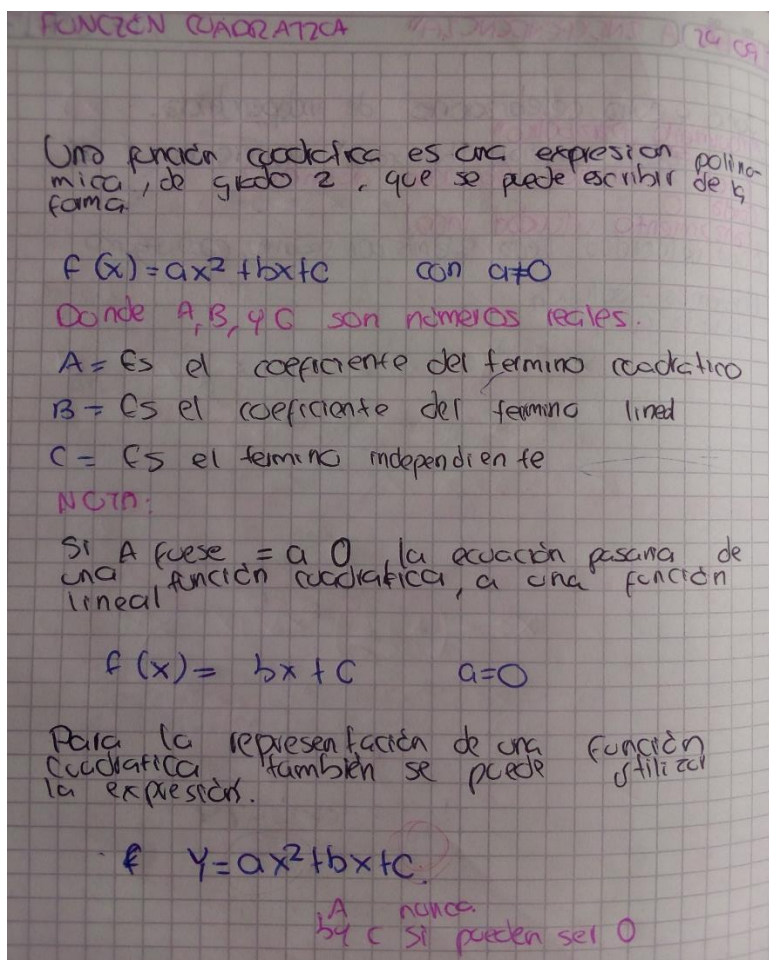 FUNCIÓN CUADRATICA 24 09
Una función cuadratica es una expresion polino-
mica, de grado 2, que se puede escribir de la
forma
f (x) = ax² + bx + c con a≠0
Donde A, B, y C son números reales.
A = Es el coeficiente del termino cuadratico
B = Es el coeficiente del termino lineal
C = Es el termino independiente
NOTA:
Si A fuese = a 0 la ecuación pasaria de
una función cuadratica, a una función
lineal
f (x) = bx + c a=0
Para la representación de una función
cuadratica también se puede utilizar
la expresión.
f y = ax² + bx + c.
A nunca
b y c si pueden ser 0